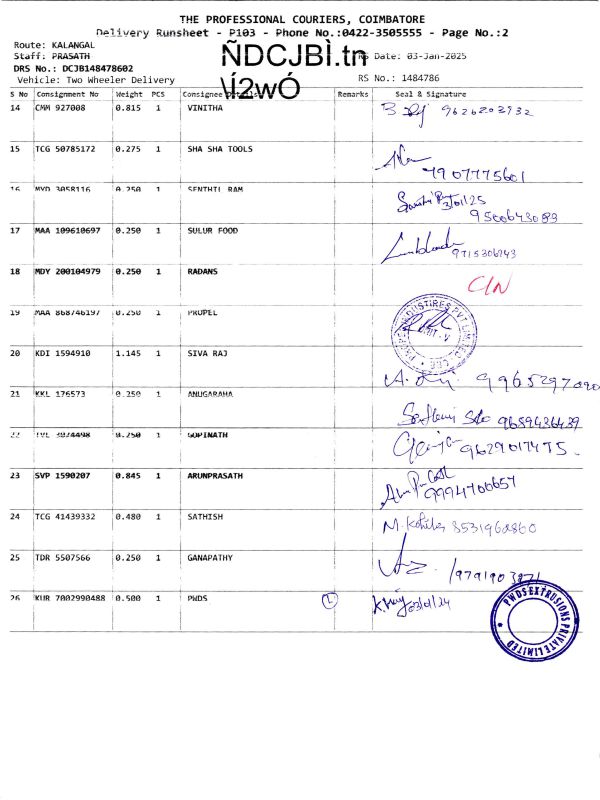 THE PROFESSIONAL COURIERS, COIMBATORE
Delivery Runsheet - P103 - Phone No.:0422-3505555 - Page No.:2
Route: KALANGAL
ÑDCJBÌ.tn
Staff: PRASATH
Date: 03-Jan-2025
DRS No.: DCJB148478602
\Í2wÓ
Vehicle: Two Wheeler Delivery
RS No.: 1484786
S No Consignment No Weight PCS Consignee Details Remarks Seal & Signature
14 CMM 927008 0.815 1 VINITHA
9626203932
15 TCG 50785172 0.275 1 SHA SHA TOOLS
7907775601
16 MYD 3058116 0.250 1 SENTHIL RAM
3/01/25
9500643089
17 MAA 109610697 0.250 1 SULUR FOOD
9715306943
18 MDY 200104979 0.250 1 RADANS
C/N
19 MAA 868746197 0.250 1 PROPEL
20 KDI 1594910 1.145 1 SIVA RAJ
9965297090
21 KKL 176573 0.250 1 ANUGARAHA
9659436439
22 TVL 3024498 0.250 1 GOPINATH
9629017475
23 SVP 1590207 0.845 1 ARUNPRASATH
9994700657
24 TCG 41439332 0.480 1 SATHISH
8531960860
25 TDR 5507566 0.250 1 GANAPATHY
9791903971
26 KUR 7002990488 0.500 1 PWDS
03/01/24
PWDS EXTRUSIONS PRIVATE LIMITED